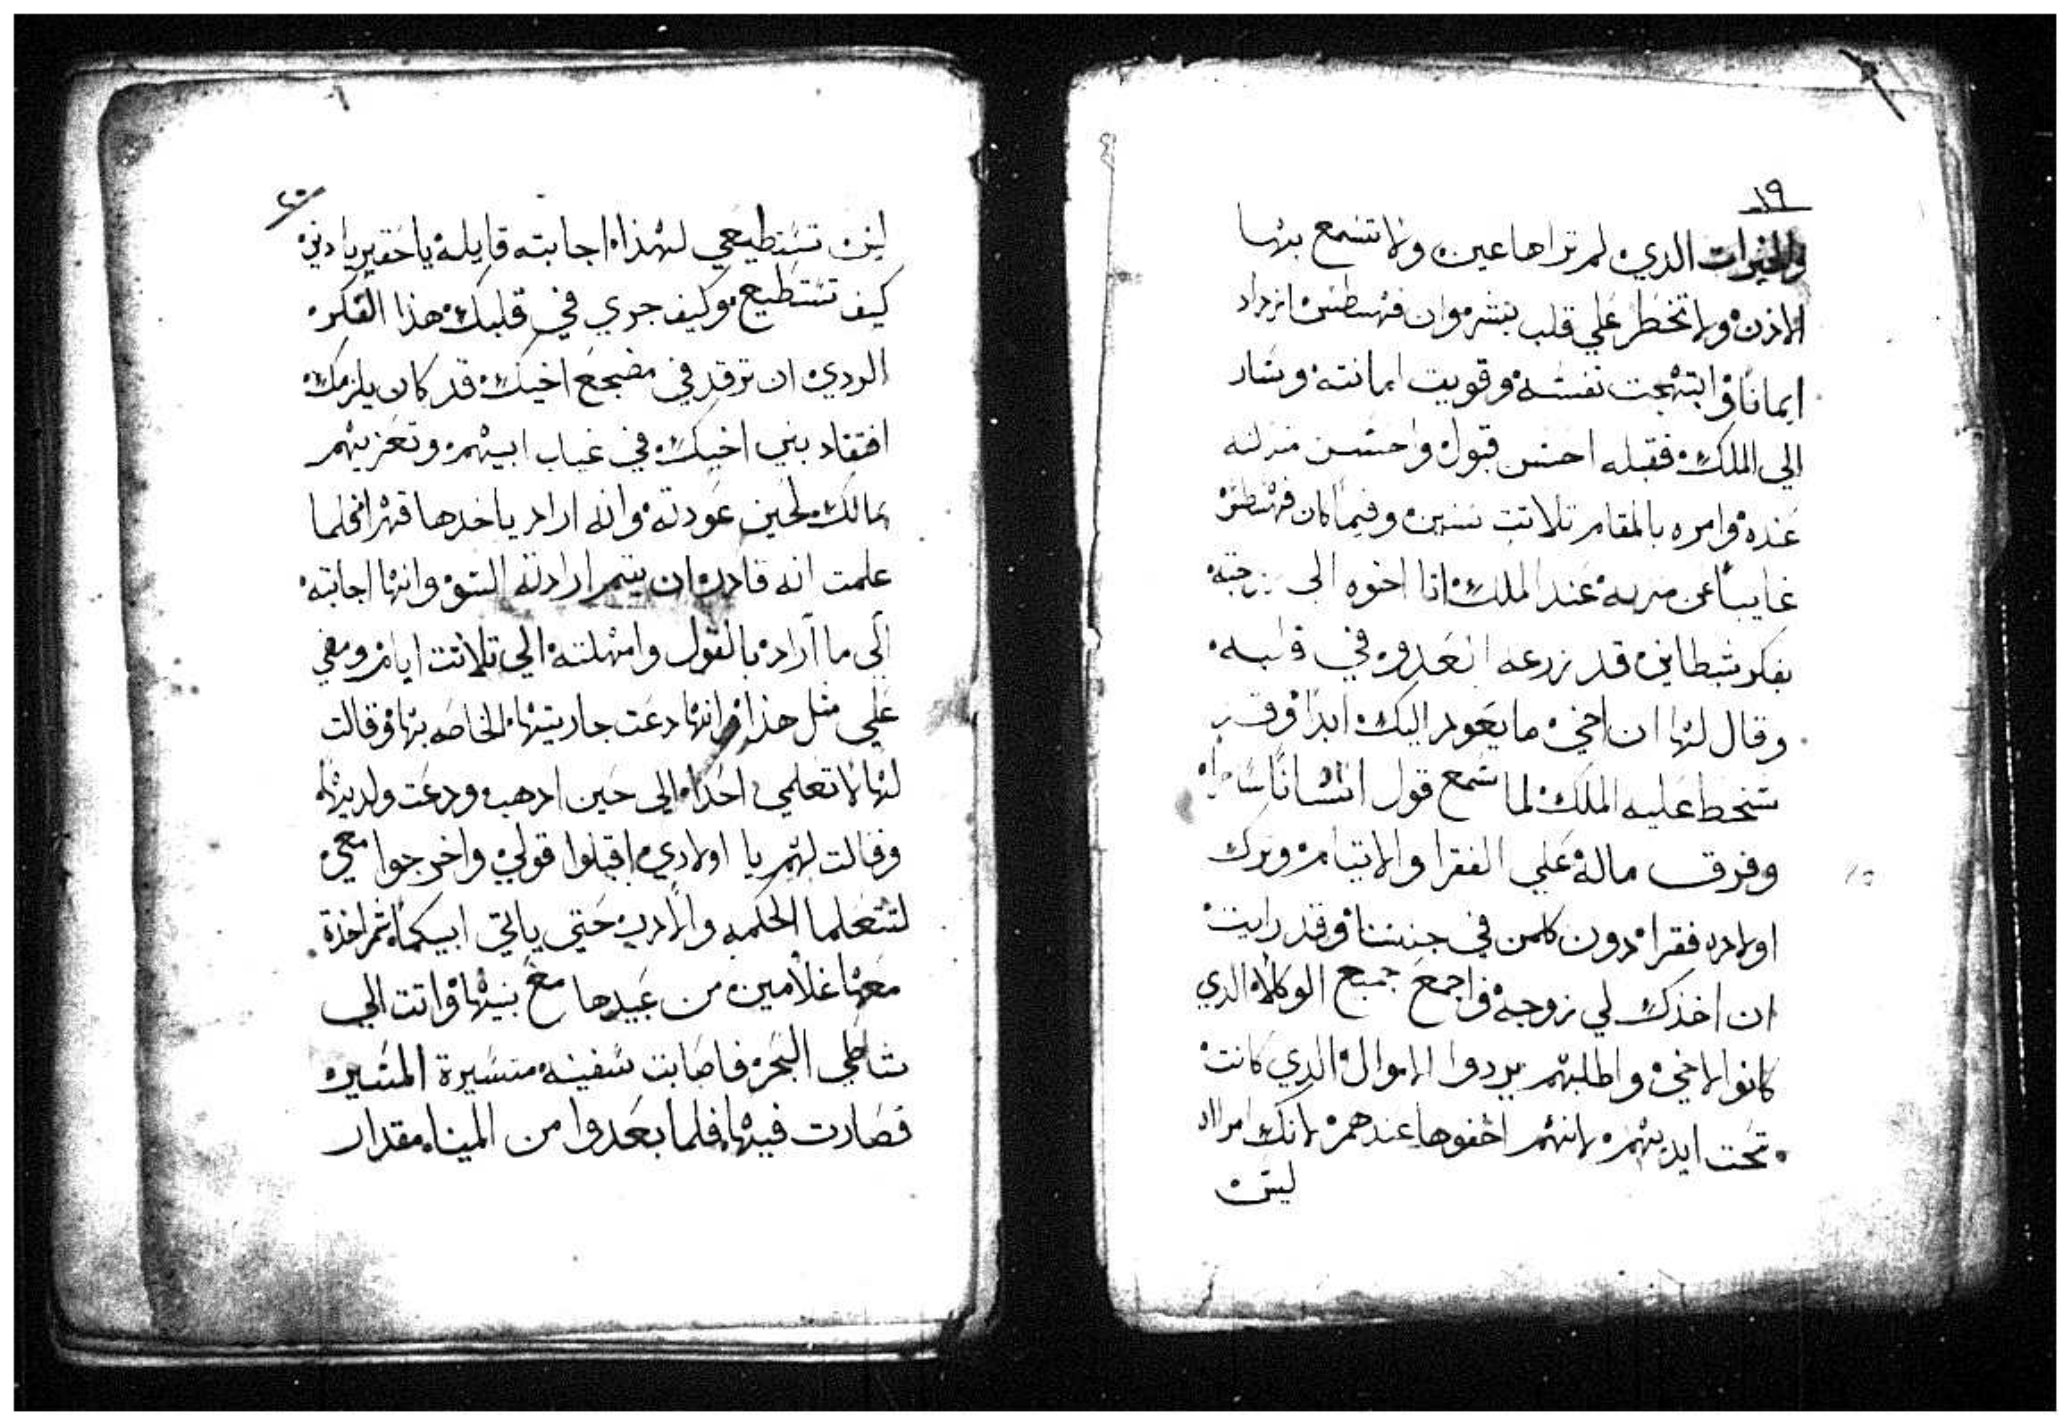 ١٩
والخيرات الذي لم تراها عين ولا تسمع بها
الاذن ولا تخطر علي قلب بشر وان فهسطس ازداد
ايمانًا وابتهجت نفسه وقويت امانته وسار
الي الملك فقبله احسن قبول واحسن منزله
عنده وامره بالمقام تلاتت سنين وفيما كان فهسطس
غايبًا عن مدينه عند الملك اتا اخوه الى زوجته
بفكر شيطاني قد زرعه العدو في قلبه
وقال لها ان اخي ما يعود اليك ابدًا وقد
سخط عليه الملك لما سمع قول انسانًا ساحرًا
وفرق ماله علي الفقرا والايتام وترك
اولاده فقرا دون كلمن في جنسنا وقد رايت
ان اخذك لي زوجه واجمع جميع الوكلاء الذي
كانوا لاخي واطلبهم يردوا الاموال الذي كانت
تحت ايديهم لانهم اخفوها عندهم لانك امراه
ليس
٢٠
ليس تستطيعي لهذا اجابته قايله يا حقير يا دني
كيف تستطيع وكيف جري في قلبك هذا الفكر
الردي ان ترقد في مضجع اخيك قد كان يلزمك
افتقاد بني اخيك في غياب ابيهم وتعزيهم
بمالك لحين عودته وانه اراد ياخدها قهرًا فلما
علمت انه قادر ان يتمم ارادته السو وانها اجابته
الى ما اراد بالقول وامهلته الي تلاتت ايام ومضي
علي مثل هذا وانها دعت جاريتها الخاصه بها وقالت
لها لا تعلمي احدًا الى حين ادهب ودعت ولديها
وقالت لهم يا اولادي اقبلوا قولي واخرجوا معي
لتتعلما الحكمه والادب حتى ياتي ابيكما ثم اخذة
معها غلامين من عبيدها مع بنيها واتت الي
شاطي البحر فاصابت سفينه متسيرة المسير
فصارت فيها فلما بعدوا من المينا مقدار